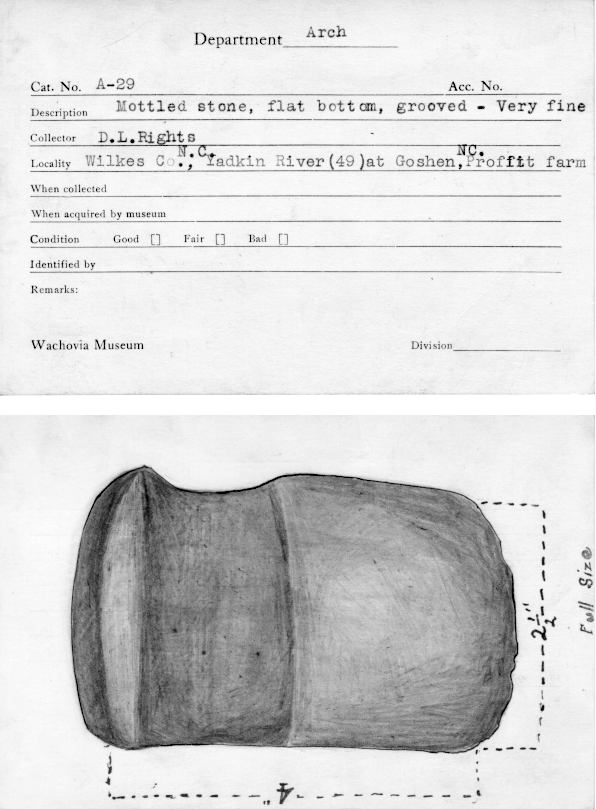 Department Arch
Cat. No. A-29 Acc. No.
Description Mottled stone, flat bottom, grooved - Very fine
Collector D.L.Rights
N.C. NC.
Locality Wilkes Co., Yadkin River(49)at Goshen, Proffit farm
When collected
When acquired by museum
Condition Good [] Fair [] Bad []
Identified by
Remarks:
Wachovia Museum Division
2 1/2"
Full Size
4"